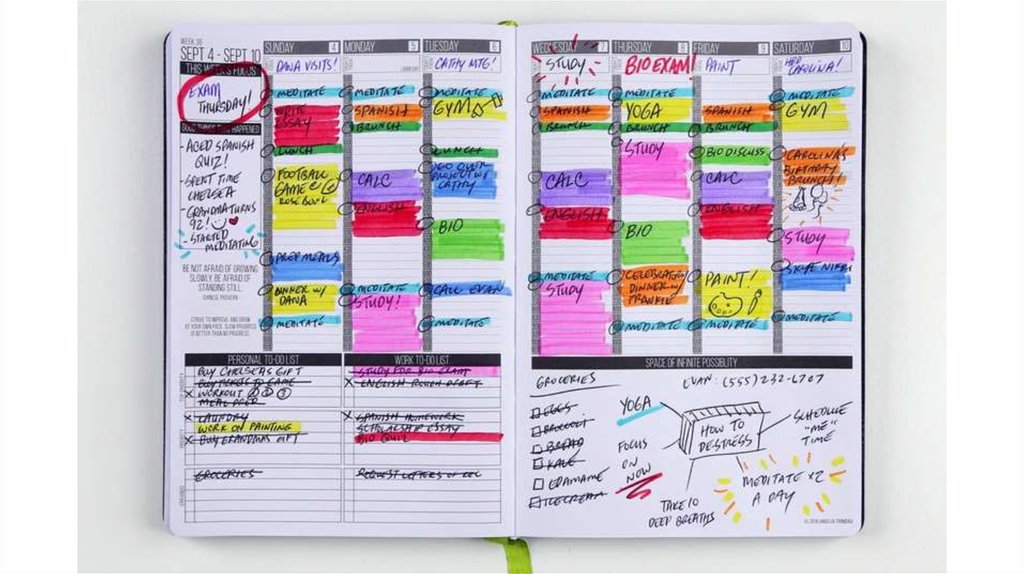 WEEK 36
SEPT 4 - SEPT 10
THIS WEEK'S FOCUS
EXAM
THURSDAY!
GOOD THINGS THAT HAPPENED
- ACED SPANISH
QUIZ!
- SPENT TIME
CHELSEA
- GRANDMA TURNS
92!
- STARTED
MEDITATING
BE NOT AFRAID OF GROWING
SLOWLY, BE AFRAID OF
STANDING STILL.
CHINESE PROVERB
STRIVE TO IMPROVE AND GROW
AT YOUR OWN PACE. SLOW PROGRESS
IS BETTER THAN NO PROGRESS.
SUNDAY 4
DANA VISITS!
MEDITATE
WRITE
ESSAY
LUNCH
FOOTBALL
GAME @
ROSE BOWL
PREP MEALS
DINNER W/
DANA
MEDITATE
MONDAY 5
LABOR DAY
MEDITATE
SPANISH
BRUNCH
CALC
ENGLISH
MEDITATE
STUDY!
TUESDAY 6
CATHY MTG!
MEDITATE
GYM
LUNCH
GO OVER
PROJECT W/
CATHY
BIO
CALL EVAN
MEDITATE
WEDNESDAY 7
STUDY
MEDITATE
SPANISH
BRUNCH
CALC
ENGLISH
MEDITATE
STUDY
THURSDAY 8
BIO EXAM!
MEDITATE
YOGA
BRUNCH
STUDY
BIO
CELEBRATORY
DINNER W/
FRANKIE
MEDITATE
FRIDAY 9
PAINT
SPANISH
BRUNCH
BIO DISCUSS
CALC
ENGLISH
PAINT!
MEDITATE
SATURDAY 10
HBD
CAROLINA!
MEDITATE
GYM
CAROLINA'S
BIRTHDAY
BRUNCH!
STUDY
SKYPE NIKKI
MEDITATE
PERSONAL TO-DO LIST
BUY CHELSEA'S GIFT
BUY TICKETS TO GAME
X WORKOUT 1 2 3
MEAL PREP
X LAUNDRY
WORK ON PAINTING
X BUY GRANDMAS GIFT
GROCERIES
WORK TO-DO LIST
STUDY FOR BIO EXAM
X ENGLISH ROUGH DRAFT
X SPANISH HOMEWORK
SCHOLARSHIP ESSAY
BIO QUIZ
REQUEST LETTERS OF REC
SPACE OF INFINITE POSSIBILITY
GROCERIES
EGGS
BROCCOLI
BREAD
KALE
EDAMAME
ICE CREAM
EVAN: (555) 232-6707
YOGA
FOCUS
ON
NOW
HOW TO
DESTRESS
SCHEDULE
"ME"
TIME
TAKE 10
DEEP BREATHS
MEDITATE X2
A DAY